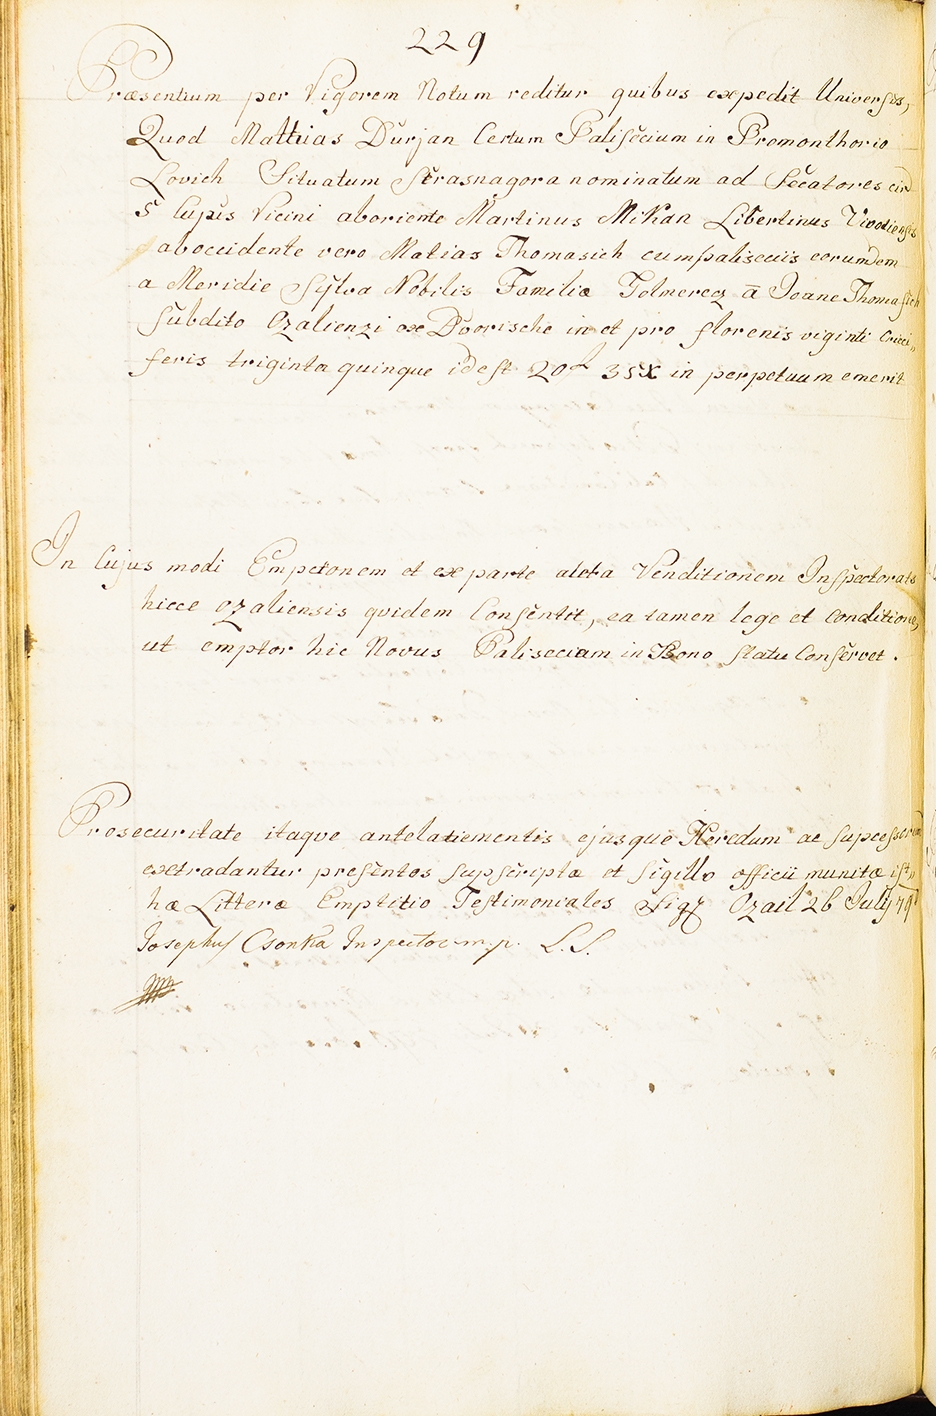 229
Præsentium per Vigorem Notum reditur quibus expedit Universis,
Quod Mathias Durjan Certum Palisecium in Promonthorio
Lovich Situatum Strasnagora nominatum ad Secatores cir
5 Cujus Vicini aboriente Martinus Mikan Libertinus Vivodiensis
aboccidente vero Matias Thomasich cumpaliseciis eorumdem
a Meridie Sylva Nobilis Familiæ Tolmerecz ā Joane Thomasich
Subdito Ozalienzi ex Dvorische in et pro florenis viginti Cruci„
feris triginta quinque idest 20f 35x in perpetuum emerit
In Cujus modi Emptonem et ex parte altera Venditionem Inspectoratus
hicce Ozaliensis qvidem Consentit, ea tamen lege et conditione,
ut emptor hic Novus Paliseciam in Bono statu Conservet.
Prosecuritate itaqve antelatiementis ejusque Heredum ac supcessorum
extradantur presentes supscriptæ et sigillo officii munitæ ist„
hæ Litteræ Emptitio Testimoniales Sigz Ozail 26 July
Josephus Csonka Inspector m.p. L.S.